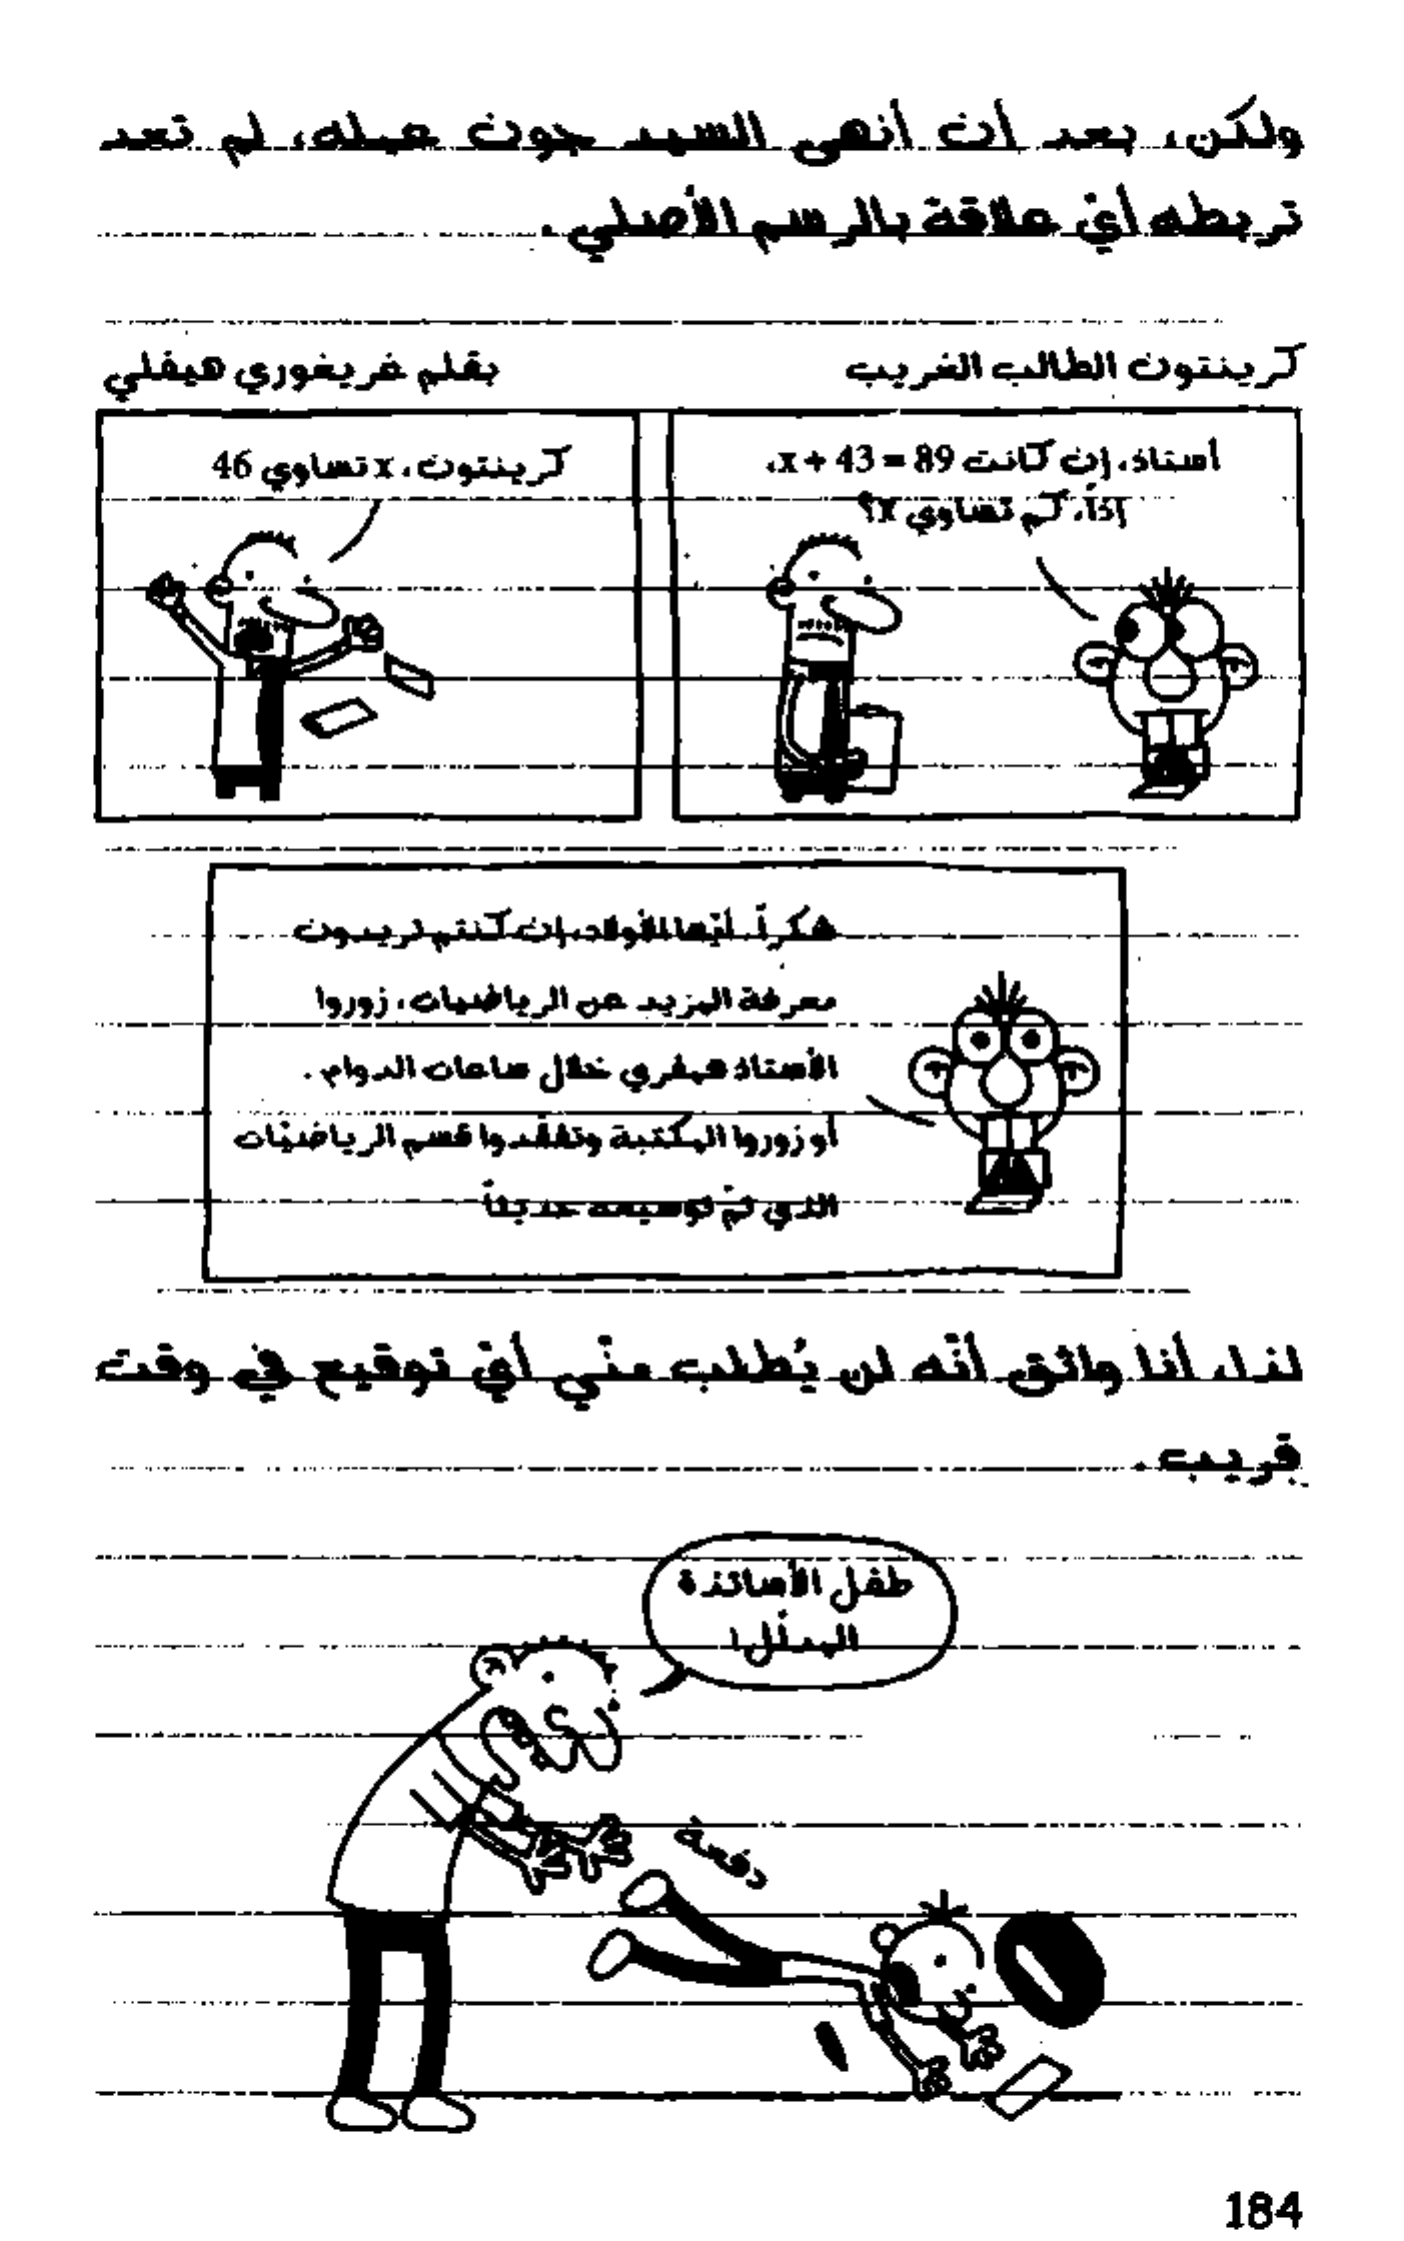 ولكن، بعد أن أنهى السيد جون عمله، لم تعد
تربطه أيّ علاقة بالرسم الأصلي.
كرينتون الطالب الغريب
بقلم غريغوري هيفلي
أستاذ، إن كانت x + 43 = 89،
إذاً، كم تساوي x؟
كرينتون، x تساوي 46
شكراً. أيّها الأولاد، إن كنتم تريدون
معرفة المزيد عن الرياضيات، زوروا
الأستاذ همفري خلال ساعات الدوام.
أو زوروا المكتبة وتفقّدوا قسم الرياضيّات
الذي تمّ توسيعه حديثاً
لذا، أنا واثق أنّه لن يُطلب منّي أيّ توقيع في وقت
قريب.
طفل الأساتذة
المدلّل!
دفعة
184